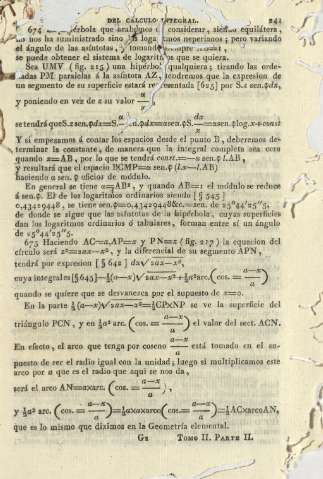 DEL CÁLCULO INTEGRAL. 241
674 hipérbola que acabamos considerar, siendo equilátera,
no nos ha suministrado sino neperianos; pero variando
el ángulo de las asíntotas, y tomando siempre
se puede obtener el sistema de logaritmos que se quiera.
Sea UMV (fig. 215) una hipérbola qualquiera; tirando las orde-
nadas PM paralelas á la asíntota AZ, tendremos que la expresion de
un segmento de su superficie estará representada [625] por S.z sen.φdx,
y poniendo en vez de z su valor
se tendrá que S.z sen.φdx=S. sen.φdx=αsen.φS. =αsen.φlog.x+const
Y si empezamos á contar los espacios desde el punto B, deberemos de-
terminar la constante, de manera que la integral completa sea cero
quando x=AB, por lo que se tendrá const.=—α sen.φ l.AB,
y resultará que el espacio BCMP=α sen.φ (l.x—l.AB)
haciendo α sen. φ oficio de módulo.
En general se tiene α=AB², y quando AB=1 el módulo se reduce
á sen.φ. El de los logaritmos ordinarios siendo [§ 545]
0,43429448, se tiene sen.φ=0,43429448&c. sen. de 25°44′25″5,
de donde se sigue que las asíntotas de la hipérbola, cuyas superficies
dan los logaritmos ordinarios ó tabulares, forman entre sí un ángulo
de 25°44′25″5.
675 Haciendo AC=a, AP=x y PN=z (fig. 217) la equacion del
círculo será z²=2ax—x², y la diferencial de su segmento APN,
tendrá por expresion [§ 642] dx√2ax—x²,
cuya integral es [§ 645]—½(a—x)√2ax—x²+½a²arc.(cos.=a—x/a)
quando se quiere que se desvanezca por el supuesto de x=0.
En la parte ½(a—x)√2ax—x²=½CP×NP se ve la superficie del
triángulo PCN, y en ½a² arc. (cos.=a—x/a) el valor del sect. ACN.
En efecto, el arco que tenga por coseno a—x/a está tomado en el su-
puesto de ser el radio igual con la unidad; luego si multiplicamos este
arco por a que es el radio que aquí se nos da,
será el arco AN=a×arc. (cos.=a—x/a),
y ½a² arc. (cos.=a—x/a)=½a×a×arco(cos.=a—x/a)=½AC×arcoAN,
que es lo mismo que diximos en la Geometría elemental.
G2 TOMO II. PARTE II.